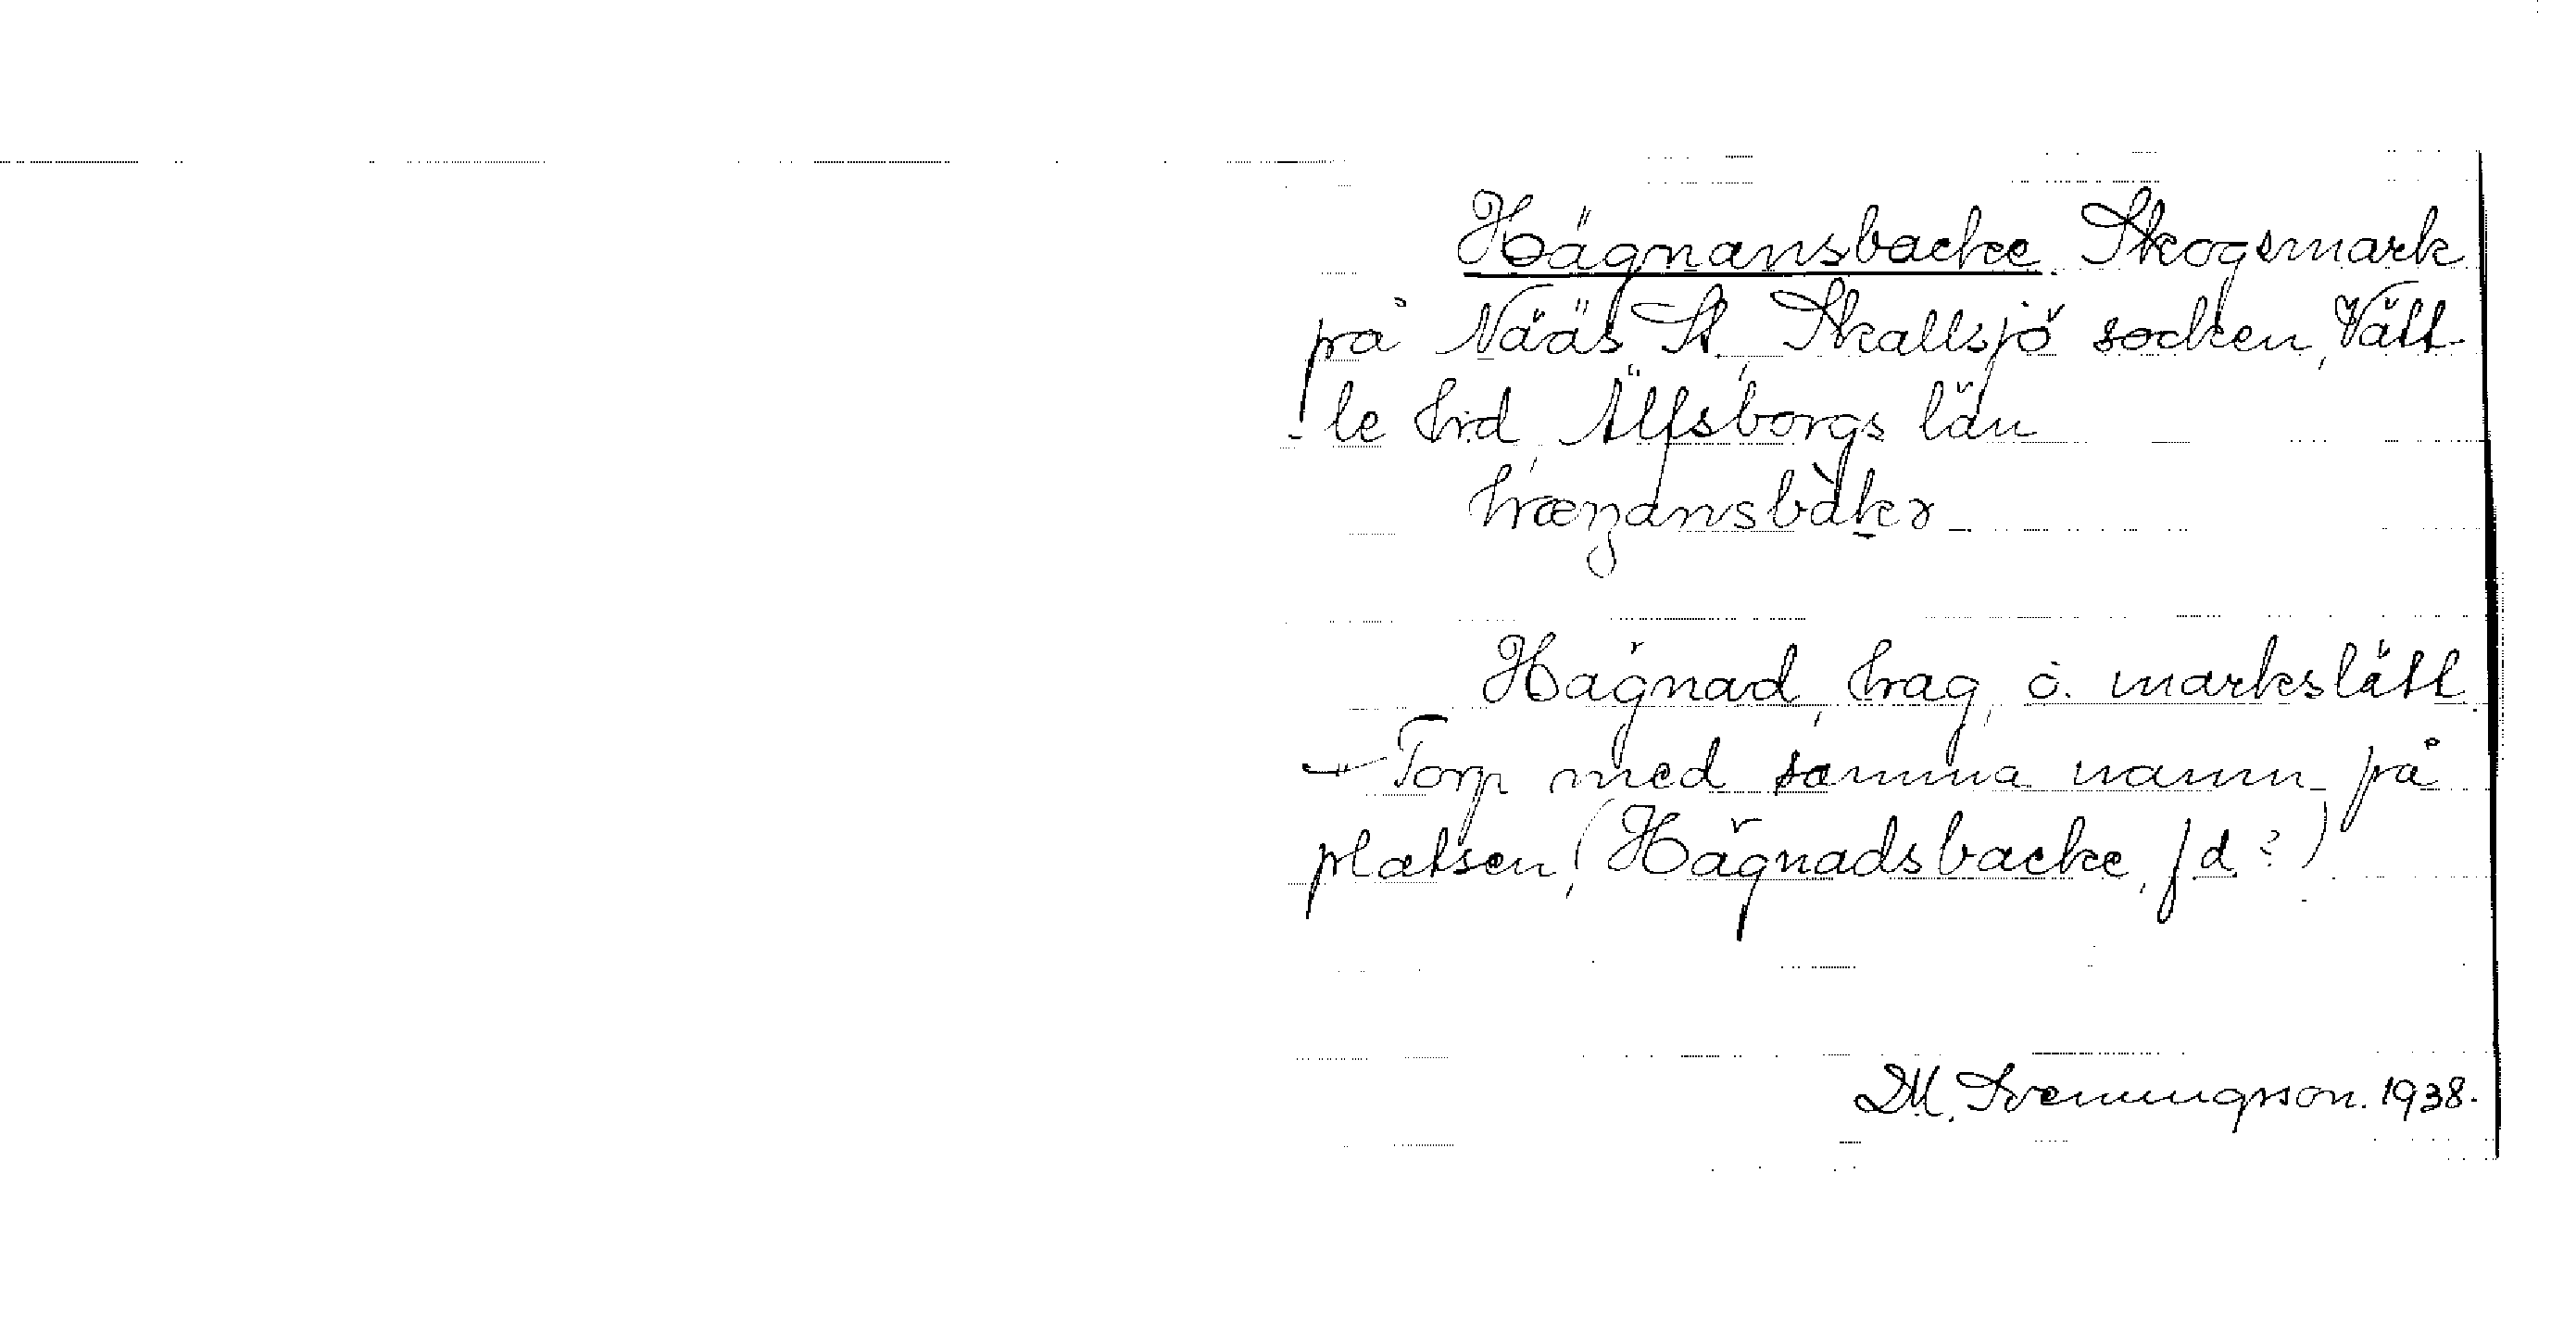 Hägnansbacke. Skogsmark
på Nääs St, Skallsjö socken, Vätt-
le hrd, Älfsborgs län
hæŋansbàkə
Hägnad, hag, ö. markslätt.
— Torp med samma namn på
platsen, (Hägnadsbacke, f d ?)
D.M. Svenningsson. 1938.